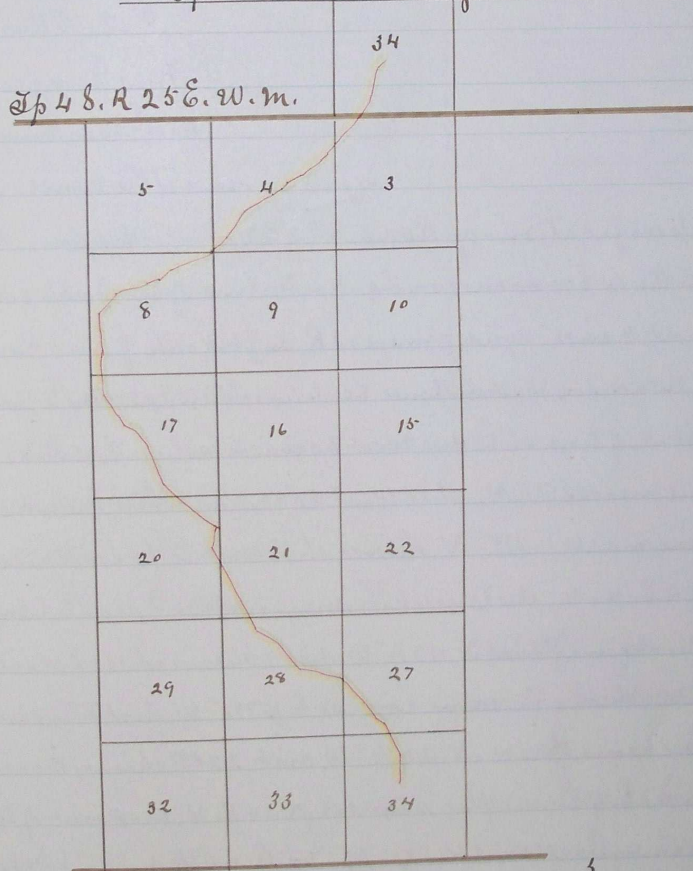 34
Tp 48. R 25 E. W. M.
5 4 3
8 9 10
17 16 15
20 21 22
29 28 27
32 33 34